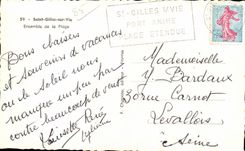 59 - Saint-Gilles-sur-Vie
Ensemble de la Plage
St-GILLES S/VIE
PORT ANIMÉ
PLAGE ETENDUE
Bons baisers
et souvenirs de vacances
où le soleil nous
manque un peu par
contre beaucoup de vent
Lucette René
Mademoiselle
Y Bardaux
30 rue Carnot
Levallois
Seine